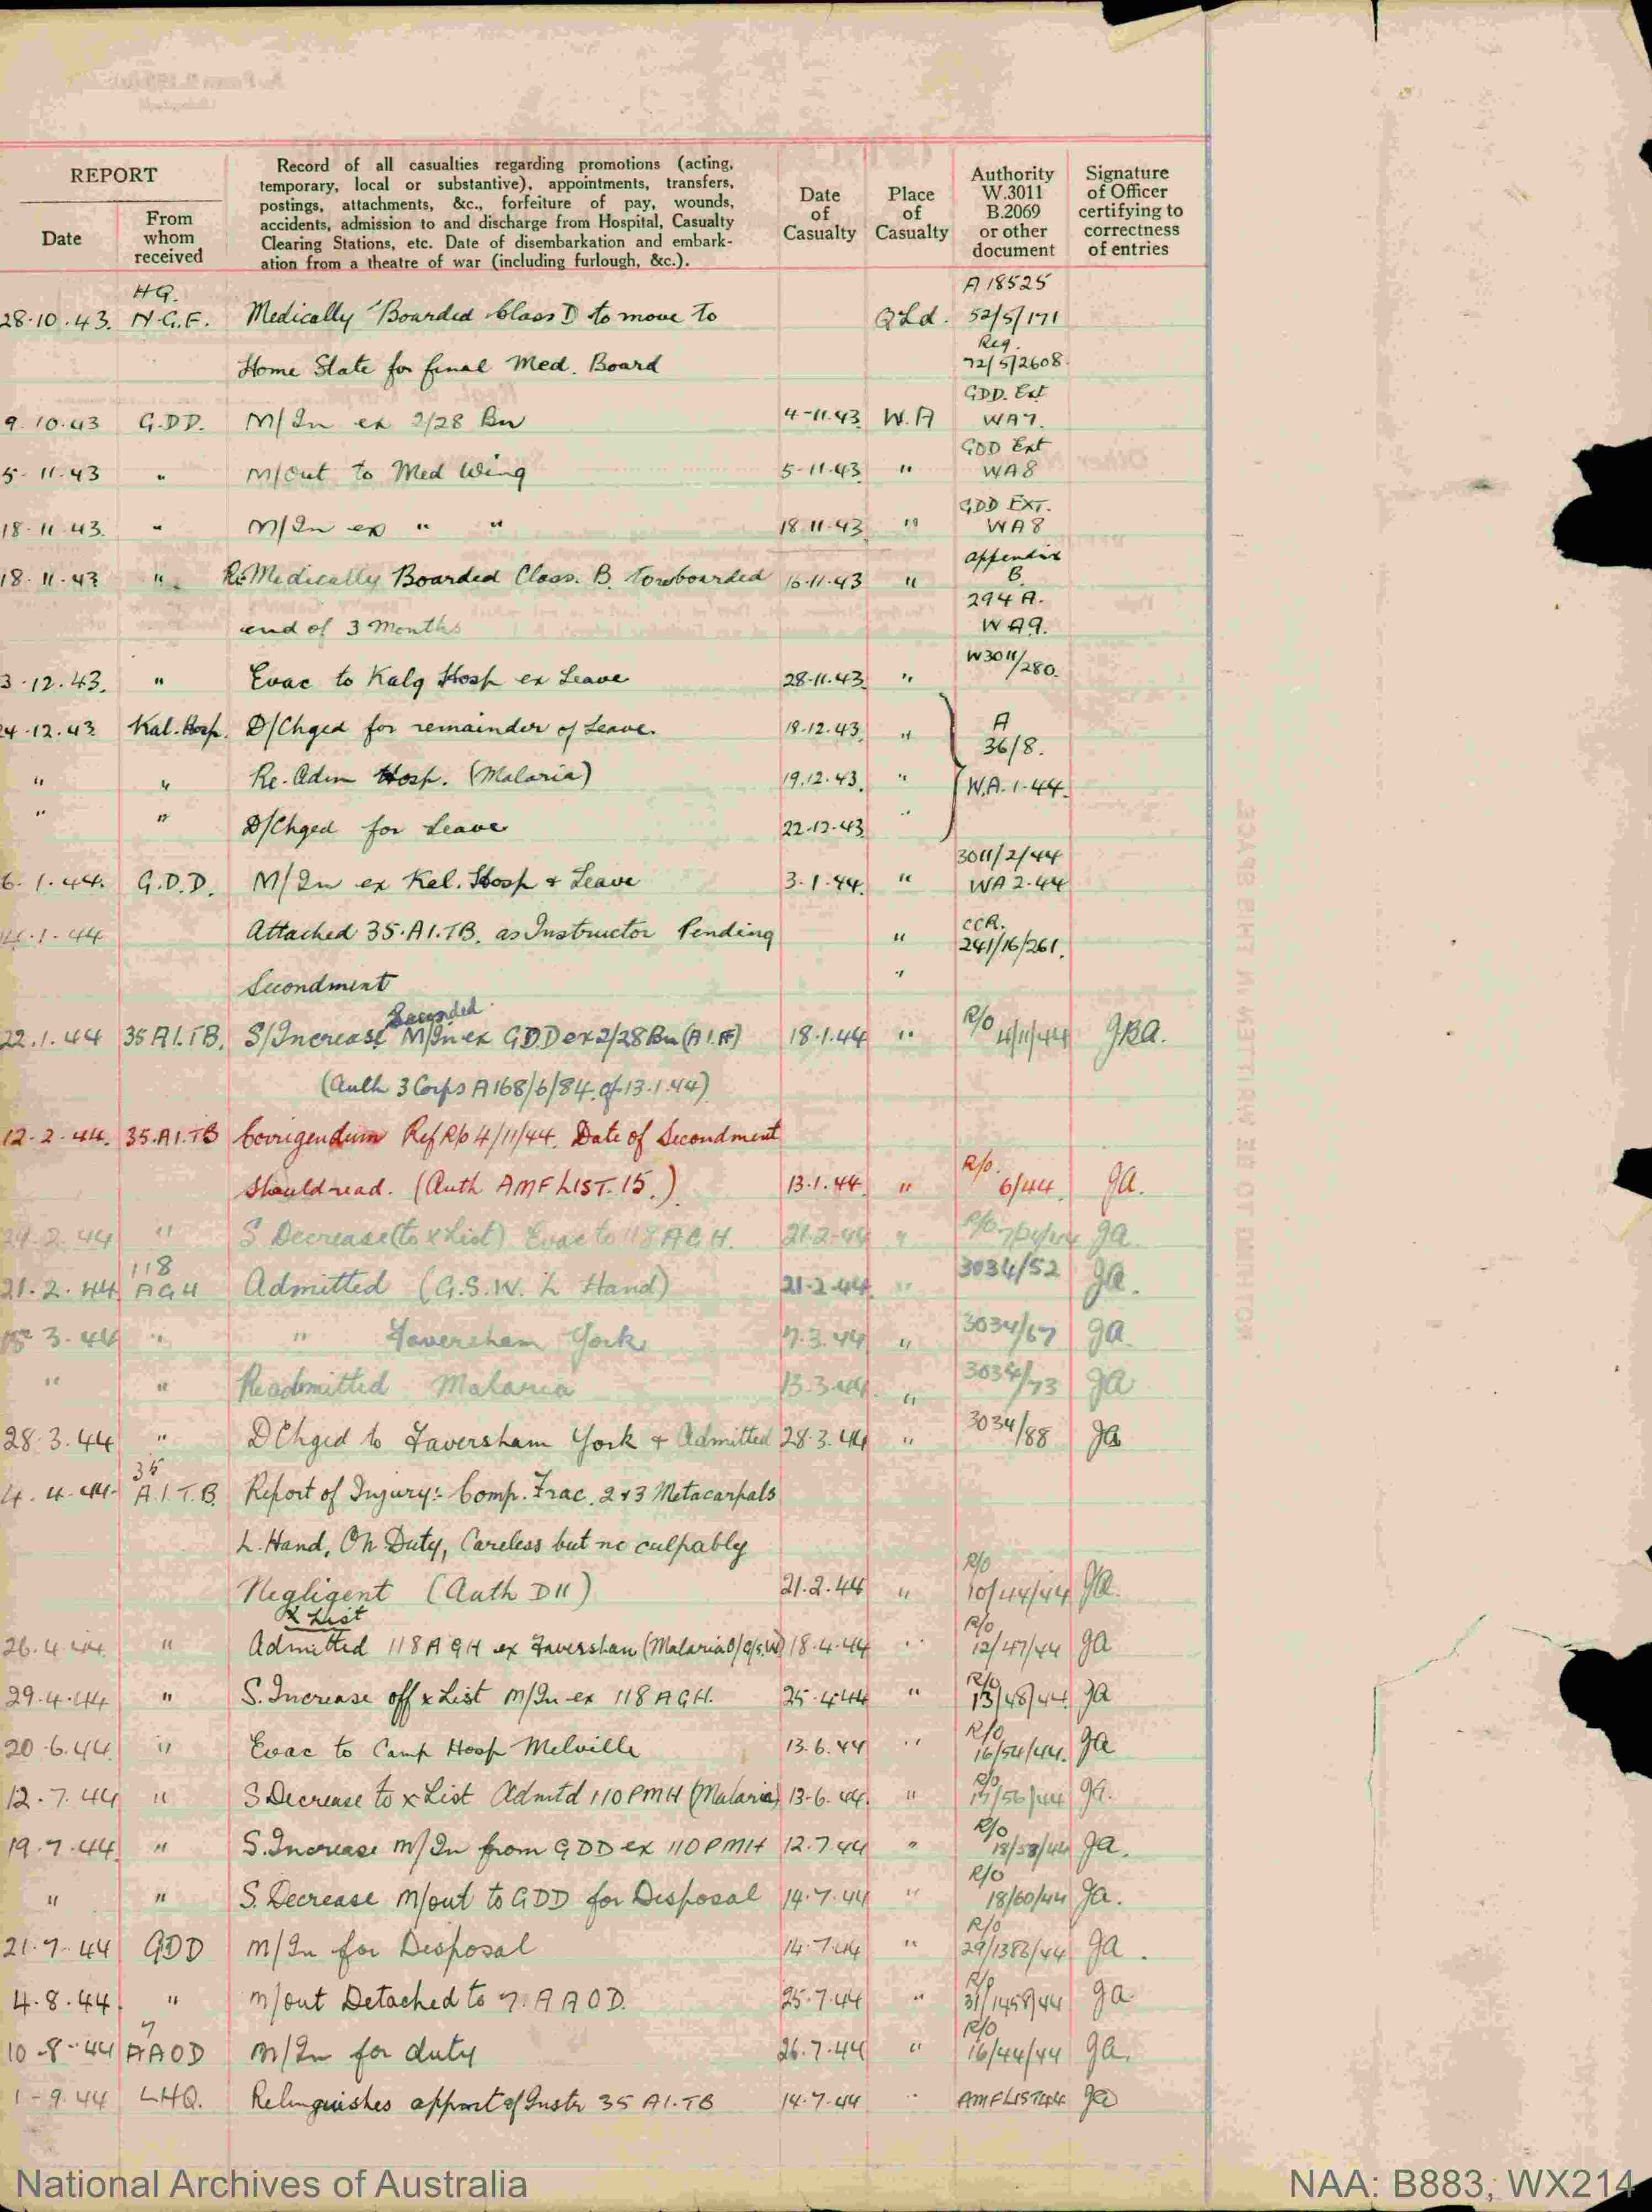 REPORT
Date
From
whom
received
Record of all casualties regarding promotions (acting,
temporary, local or substantive), appointments, transfers,
postings, attachments, &c., forfeiture of pay, wounds,
accidents, admission to and discharge from Hospital, Casualty
Clearing Stations, etc. Date of disembarkation and embark-
ation from a theatre of war (including furlough, &c.).
Date
of
Casualty
Place
of
Casualty
Authority
W.3011
B.2069
or other
document
Signature
of Officer
certifying to
correctness
of entries
HQ. A 18525
28.10.43. N.G.F. Medically Boarded Class D to move to Qld. 52/5/171
Reg.
Home State for final Med. Board 72/5/2608.
GDD. Ext
9.10.43 G.DD. M/In ex 2/28 Bn 4-11.43 W.A WA7.
GDD Ext
5-11.43 " M/Out to Med Wing 5-11.43 " WA8
GDD EXT.
18-11-43. " M/In ex " " 18.11.43 " WA8
appendix
18.11.43 " Re Medically Boarded Class. B. 16.11.43 " B.
294 A.
end of 3 Months WA9.
3.12.43. " Evac to Kalg Hosp ex Leave 28-11.43. " W3011/280.
24.12.43 Kal. Hosp. D/Chged for remainder of Leave. 19.12.43. " A
36/8.
" " Re. Adm Hosp. (Malaria) 19.12.43. " W.A. 1.44.
" " D/Chged for Leave 22.12.43 "
3011/2/44
6.1.44. G.D.D. M/In ex Kal. Hosp & Leave 3.1.44. " WA 2.44
1.44 Attached 35.A.I.T.B. as Instructor Pending " CCR.
241/16/261.
Secondment "
Seconded
22.1.44 35 A.I.T.B. S/Increase M/In ex GDD ex 2/28 Bn (A.I.F) 18.1.44 " R/O 4/11/44 JKA.
(Auth 3 Corps A168/6/84. of 13.1.44)
12.2.44. 35.A.I.TB Corrigendum Ref R/o 4/11/44. Date of Secondment
Should read. (Auth AMF LIST.15.) 13.1.44 " R/o. 6/44. ga.
24.2.44 " S Decrease (to x List) Evac to 118 AGH. 21.2.44 " R/O ga
118
21.2.44 AGH Admitted (G.S.W. L Hand) 21.2.44. " 3034/52 ga.
3.44 " " Faversham York 7.3.44 " 3034/67 ga
" " Readmitted Malaria 13.3.44. " 3034/73 ga
28.3.44 " D Chged to Faversham York & Admitted 28.3.44 " 3034/88 ga
35
4.4.44. A.I.T.B. Report of Injury: Comp. Frac. 2 & 3 Metacarpals
L. Hand, On Duty, Careless but no culpably
Negligent (Auth D11) 21.2.44 " R/O 10/44/44 ga.
X List
26.4.44. " Admitted 118 AGH ex Faversham (Malaria 18.4.44 " R/O 12/47/44 ga
29.4.44 " S. Increase off x List M/In ex 118 AGH. 25.4.44 " R/O 13/48/44. ga
20.6.44. " Evac to Camp Hosp Melville 13.6.44 " R/O 16/54/44. ga
12.7.44 " S Decrease to x List Admtd 110 PMH (Malaria) 13-6.44. " R/O /56/44 ga.
19.7.44. " S. Increase M/In from GDD ex 110 PMH 12.7.44 " R/O 18/58/44 ga.
" " S. Decrease M/out to GDD for Disposal 14.7.44 " R/O 18/60/44 ga.
21.7.44 GDD M/In for Disposal 14.7.44 " R/O 29/1386/44 ga.
4.8.44. " M/out Detached to 7. AAOD. 25.7.44 " R/O 31/1458/44 ga
7
10-8-44 AAOD M/In for duty 26.7.44 " R/O 16/44/44 ga.
1-9.44 LHQ. Relinquishes appmt of Instr 35 A.I.TB 14.7.44 " AMF LIST44 ga
NOTHING TO BE WRITTEN IN THIS SPACE
National Archives of Australia
NAA: B883, WX214